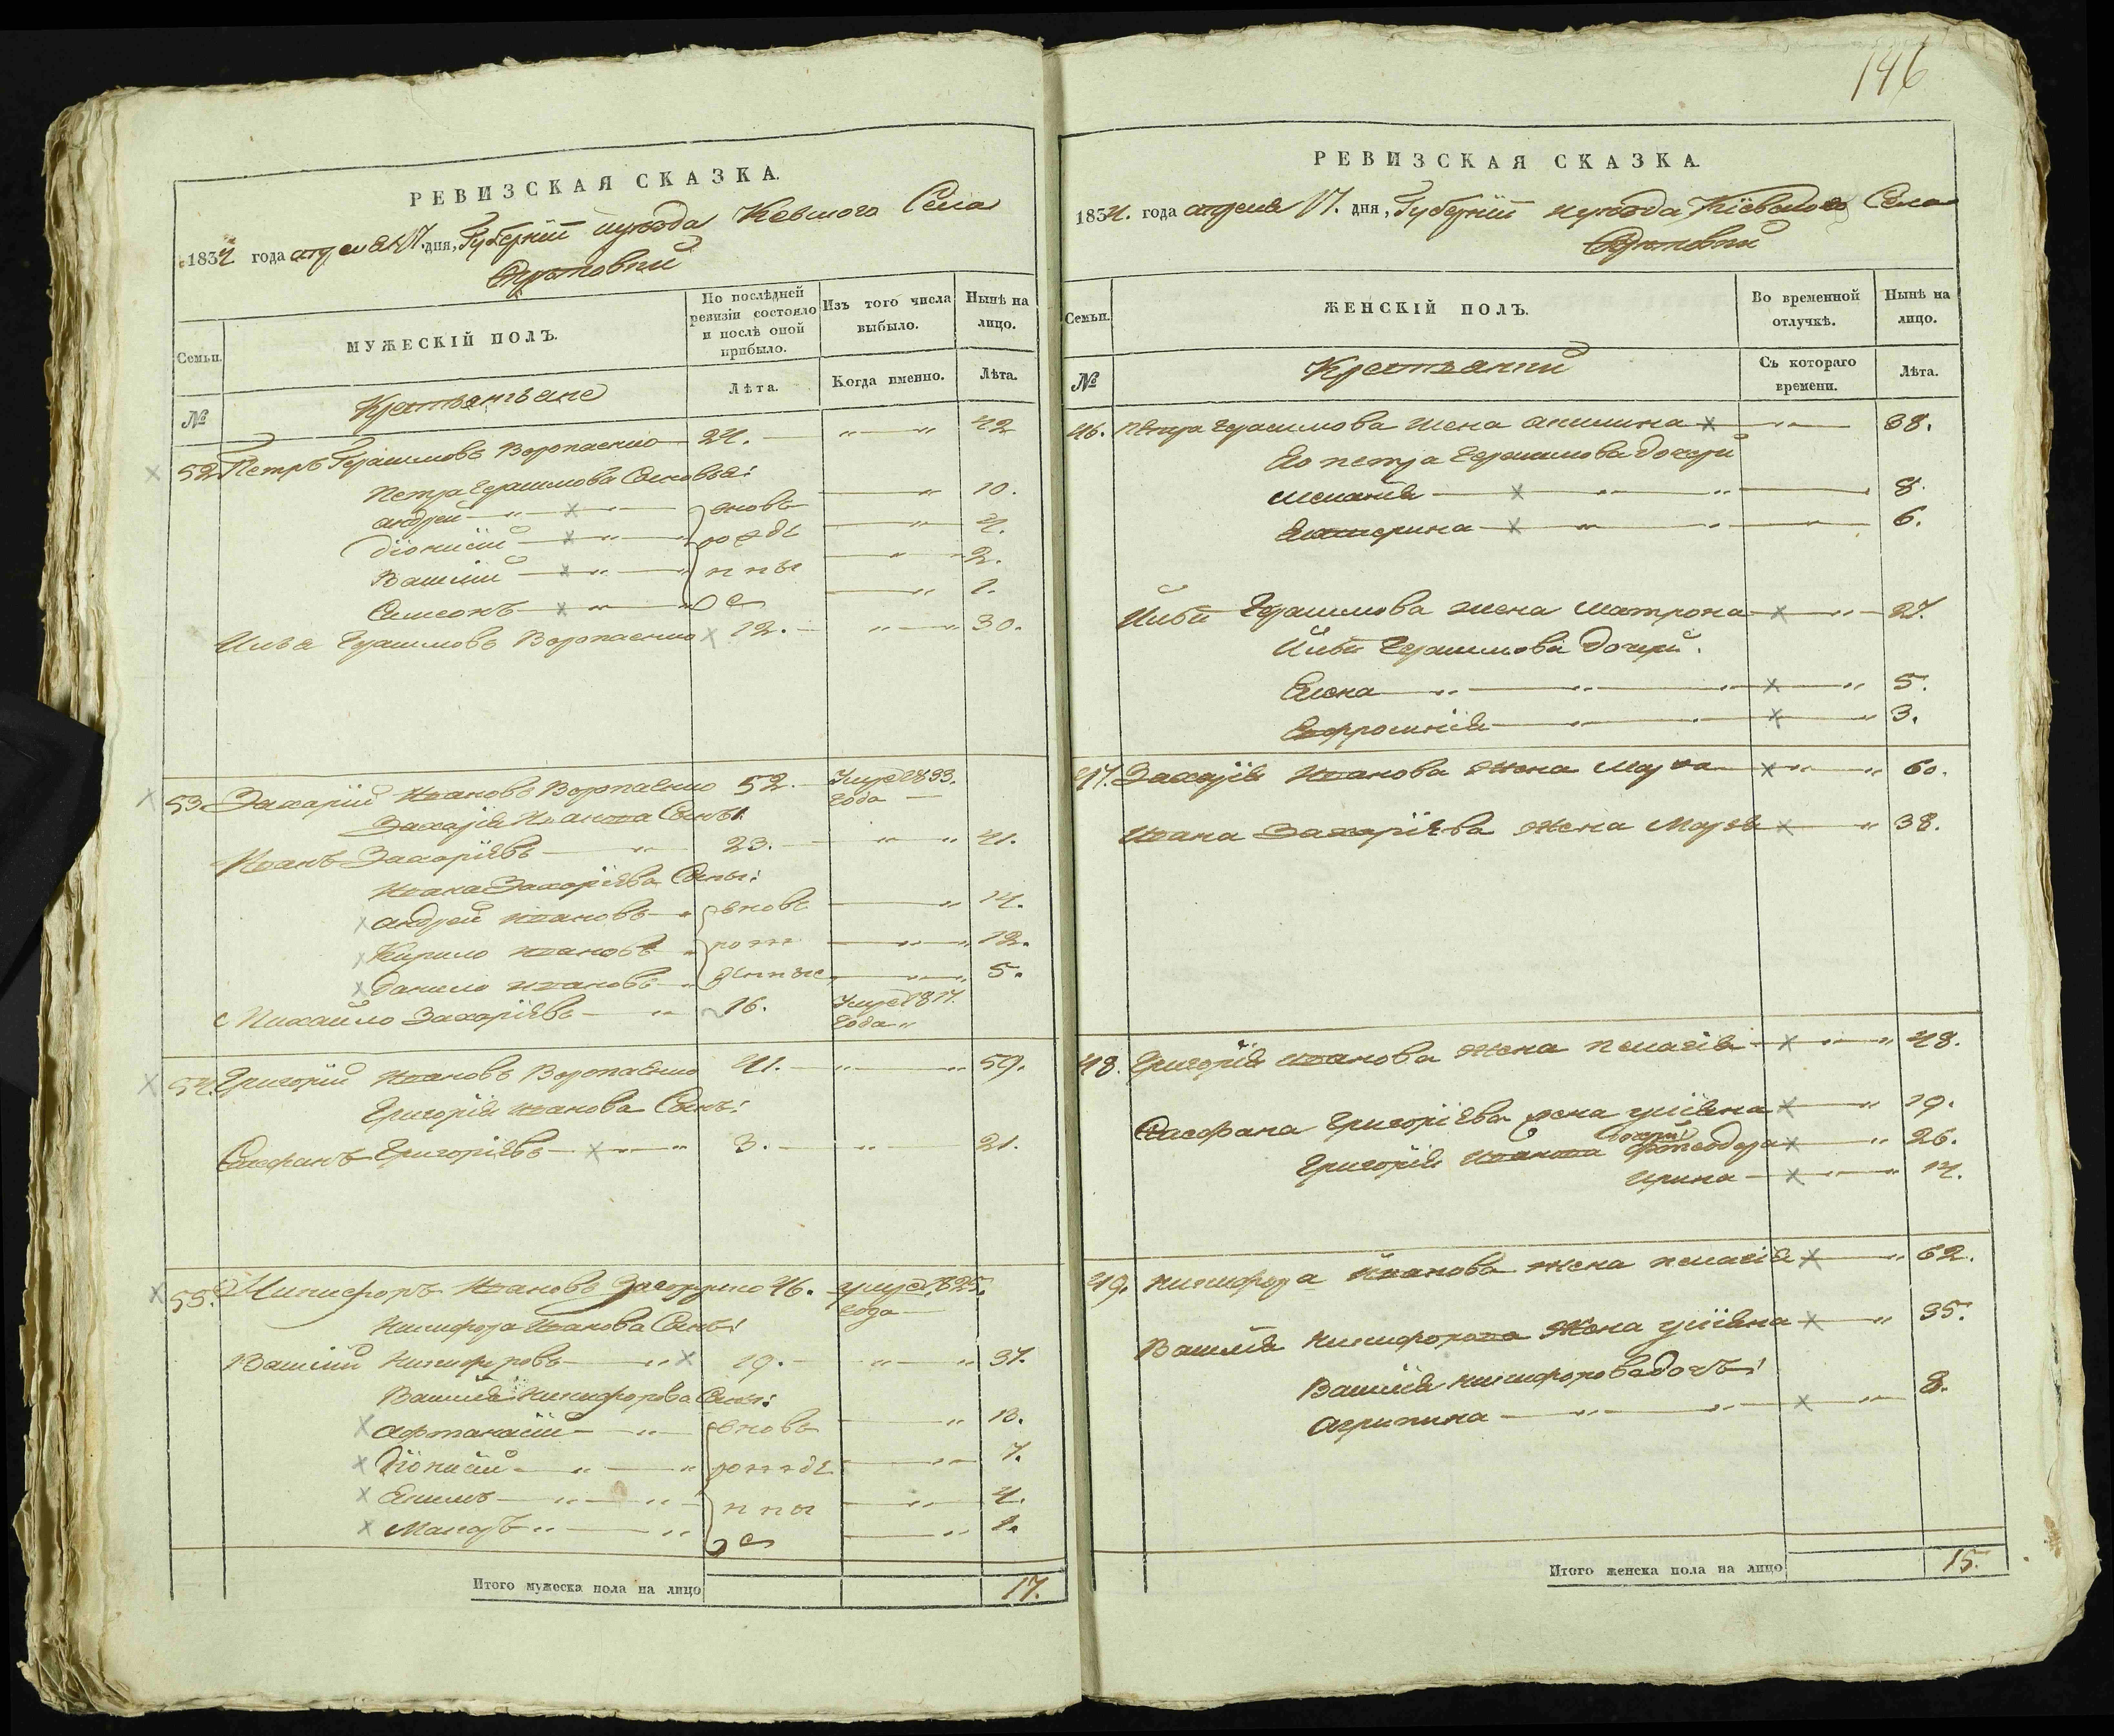 РЕВИЗСКАЯ СКАЗКА.
1834 года апреля 17. дня, Губернiи и уезда Кевского Села
МУЖЕСКIЙ ПОЛЪ.
По послѣдней ревизiи состояло и послѣ оной прибыло.
Изъ того числа выбыло.
Нынѣ на лицо.
Семьи.
№
Крестьяньяне
Лѣта.
Когда именно.
Лѣта.
52 Петръ Герасимовъ Воропаенко 24. 42
Петра Герасимова Сыновья:
андрей вновь 10.
дiонисiй рожде 4.
Василiй нны 2.
Симеонъ е 1.
Илья Герасимовъ Воропаенко 12. 30.
53 Захарiй Ивановъ Воропаенко 52. Умре 1833. года
Захарiя Иванова Сынъ:
Иванъ Захарiевъ 23. 41.
Ивана Захарiева Сыны:
андрей Ивановъ вновь 14.
Кирило Ивановъ рож 12.
данило Ивановъ денные 5.
Михайло Захарiевъ 16. Умре 1817. года
54. Григорiй Ивановъ Воропаенко 41. 59.
Григорiя Иванова Сынъ:
Стефанъ Григорiевъ 3. 21.
55. Никифоръ Ивановъ 46. умре 1825. года
Никифора Иванова Сынъ:
Василiй Никифоровъ 19. 37.
Василiя Никифорова Сыны:
афтанасiй вновь 13.
дiонисiй рожде 7.
Екимъ нны 4.
Макаръ е 1.
Итого мужеска пола на лицо 17.
146
РЕВИЗСКАЯ СКАЗКА.
1834. года апреля 17. дня, Губернiи и уезда Кiевского Села
ЖЕНСКIЙ ПОЛЪ.
Во временной отлучкѣ.
Нынѣ на лицо.
Семьи.
№
Крестьянки
Съ котораго времени.
Лѣта.
46. Петра Герасимова жена акилина 38.
Его петра Герасимова дочери
меланiя 8.
Екатерина 6.
Ильи Герасимова жена матрона 27.
Ильи Герасимова дочери.
Елена 5.
Ефросинiя 3.
47. Захарiя Иванова жена Марфа 60.
Ивана Захарiева жена Марья 38.
48. Григорiя Иванова жена пелагiя 48.
Стефана Григорiева жена улiяна 19.
Григорiя Иванова дочери феодора 26.
Ирина 14.
49. Никифора Иванова жена пелагiя 62.
Василiя Никифорова жена улiяна 35.
Василiя никифорова дочь:
агрипина 8.
Итого женска пола на лицо 15.